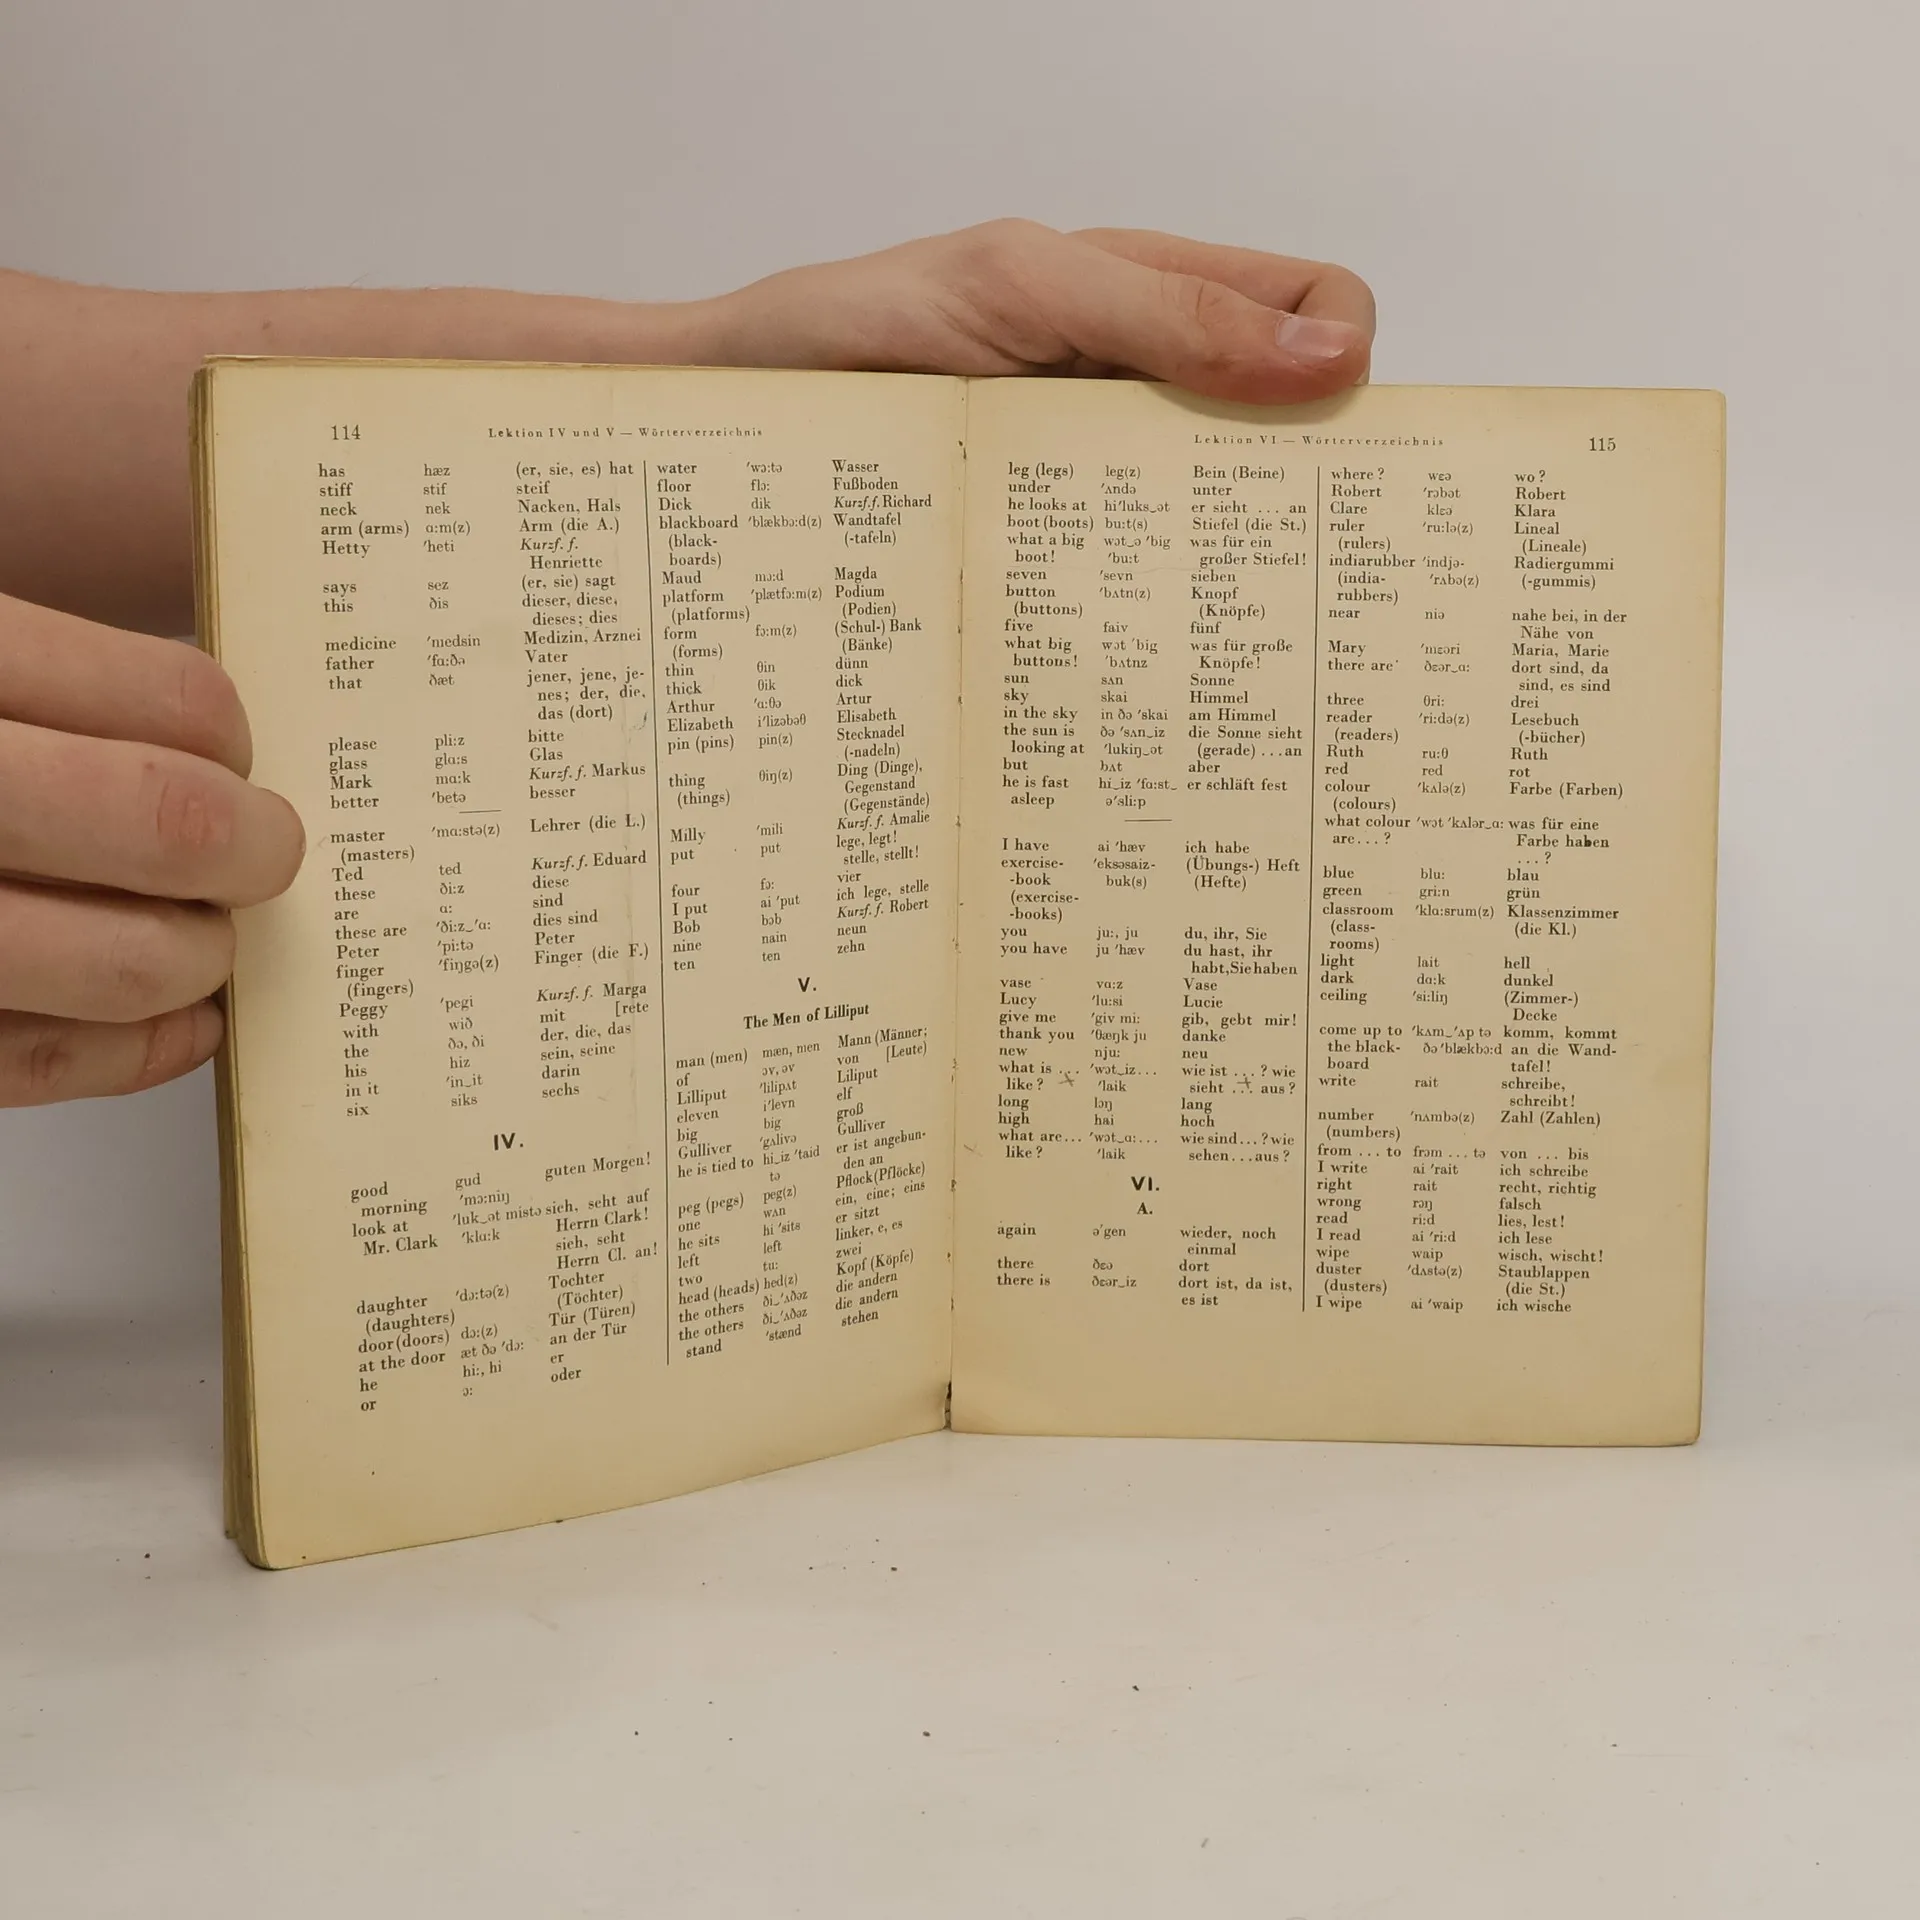 114
Lektion IV und V — Wörterverzeichnis
has hæz (er, sie, es) hat
stiff stif steif
neck nek Nacken, Hals
arm (arms) ɑ:m(z) Arm (die A.)
Hetty 'heti Kurzf. f.
Henriette
says sez (er, sie) sagt
this ðis dieser, diese,
dieses; dies
medicine 'medsin Medizin, Arznei
father 'fɑ:ðə Vater
that ðæt jener, jene, je-
nes; der, die,
das (dort)
please pli:z bitte
glass glɑ:s Glas
Mark mɑ:k Kurzf. f. Markus
better 'betə besser
master 'mɑ:stə(z) Lehrer (die L.)
(masters)
Ted ted Kurzf. f. Eduard
these ði:z diese
are ɑ: sind
these are 'ði:z‿'ɑ: dies sind
Peter 'pi:tə Peter
finger 'fiŋgə(z) Finger (die F.)
(fingers)
Peggy 'pegi Kurzf. f. Marga
with wið mit [rete
the ðə, ði der, die, das
his hiz sein, seine
in it 'in‿it darin
six siks sechs
IV.
good gud guten Morgen!
morning 'mɔ:niŋ
look at 'luk‿ət mistə sieh, seht auf
Mr. Clark 'klɑ:k Herrn Clark!
sieh, seht
Herrn Cl. an!
daughter 'dɔ:tə(z) Tochter
(daughters) (Töchter)
door (doors) dɔ:(z) Tür (Türen)
at the door æt ðə 'dɔ: an der Tür
he hi:, hi er
or ɔ: oder
water 'wɔ:tə Wasser
floor flɔ: Fußboden
Dick dik Kurzf. f. Richard
blackboard 'blækbɔ:d(z) Wandtafel
(black- (-tafeln)
boards)
Maud mɔ:d Magda
platform 'plætfɔ:m(z) Podium
(platforms) (Podien)
form fɔ:m(z) (Schul-) Bank
(forms) (Bänke)
thin θin dünn
thick θik dick
Arthur 'ɑ:θə Artur
Elizabeth i'lizəbəθ Elisabeth
pin (pins) pin(z) Stecknadel
(-nadeln)
thing θiŋ(z) Ding (Dinge),
(things) Gegenstand
(Gegenstände)
Milly 'mili Kurzf. f. Amalie
put put lege, legt!
stelle, stellt!
four fɔ: vier
I put ai 'put ich lege, stelle
Bob bɔb Kurzf. f. Robert
nine nain neun
ten ten zehn
V.
The Men of Lilliput
man (men) mæn, men Mann (Männer;
of ɔv, əv von [Leute)
Lilliput 'lilipʌt Liliput
eleven i'levn elf
big big groß
Gulliver 'gʌlivə Gulliver
he is tied to hi‿iz 'taid er ist angebun-
tə den an
peg (pegs) peg(z) Pflock (Pflöcke)
one wʌn ein, eine; eins
he sits hi 'sits er sitzt
left left linker, e, es
two tu: zwei
head (heads) hed(z) Kopf (Köpfe)
the others ði‿'ʌðəz die andern
the others ði‿'ʌðəz die andern
stand 'stænd stehen
Lektion VI — Wörterverzeichnis
115
leg (legs) leg(z) Bein (Beine)
under 'ʌndə unter
he looks at hi'luks‿ət er sieht ... an
boot (boots) bu:t(s) Stiefel (die St.)
what a big wɔt‿ə 'big was für ein
boot! 'bu:t großer Stiefel!
seven 'sevn sieben
button 'bʌtn(z) Knopf
(buttons) (Knöpfe)
five faiv fünf
what big wɔt 'big was für große
buttons! 'bʌtnz Knöpfe!
sun sʌn Sonne
sky skai Himmel
in the sky in ðə 'skai am Himmel
the sun is ðə 'sʌn‿iz die Sonne sieht
looking at 'lukiŋ‿ət (gerade) ... an
but bʌt aber
he is fast hi‿iz 'fɑ:st‿ er schläft fest
asleep ə'sli:p
I have ai 'hæv ich habe
exercise- 'eksəsaiz- (Übungs-) Heft
-book buk(s) (Hefte)
(exercise-
-books)
you ju:, ju du, ihr, Sie
you have ju 'hæv du hast, ihr
habt, Sie haben
vase vɑ:z Vase
Lucy 'lu:si Lucie
give me 'giv mi: gib, gebt mir!
thank you 'θæŋk ju danke
new nju: neu
what is ... 'wɔt‿iz... wie ist ... ? wie
like? 'laik sieht ... aus?
long lɔŋ lang
high hai hoch
what are... 'wɔt‿ɑ:... wie sind...? wie
like? 'laik sehen...aus?
VI.
A.
again ə'gen wieder, noch
einmal
there ðɛə dort
there is ðɛər‿iz dort ist, da ist,
es ist
where? wɛə wo?
Robert 'rɔbət Robert
Clare klɛə Klara
ruler 'ru:lə(z) Lineal
(rulers) (Lineale)
indiarubber 'indjə- Radiergummi
(india- 'rʌbə(z) (-gummis)
rubbers)
near niə nahe bei, in der
Nähe von
Mary 'mɛəri Maria, Marie
there are ðɛər‿ɑ: dort sind, da
sind, es sind
three θri: drei
reader 'ri:də(z) Lesebuch
(readers) (-bücher)
Ruth ru:θ Ruth
red red rot
colour 'kʌlə(z) Farbe (Farben)
(colours)
what colour 'wɔt 'kʌlər‿ɑ: was für eine
are...? Farbe haben
...?
blue blu: blau
green gri:n grün
classroom 'klɑ:srum(z) Klassenzimmer
(class- (die Kl.)
rooms)
light lait hell
dark dɑ:k dunkel
ceiling 'si:liŋ (Zimmer-)
Decke
come up to 'kʌm‿'ʌp tə komm, kommt
the black- ðə 'blækbɔ:d an die Wand-
board tafel!
write rait schreibe,
schreibt!
number 'nʌmbə(z) Zahl (Zahlen)
(numbers)
from ... to frɔm ... tə von ... bis
I write ai 'rait ich schreibe
right rait recht, richtig
wrong rɔŋ falsch
read ri:d lies, lest!
I read ai 'ri:d ich lese
wipe waip wisch, wischt!
duster 'dʌstə(z) Staublappen
(dusters) (die St.)
I wipe ai 'waip ich wische